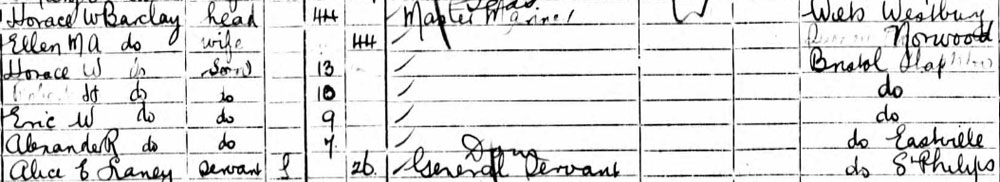 Horace W Barclay head 44 Master Mariner Wilts Westbury
Ellen M A do wife 44 Norwood
Horace W do Son 13 Bristol
H do do 10 do
Eric W do do 9 do
Alexander R do do 7 do Eastville
Alice E Laney Servant S 26 General Servant do St Philips